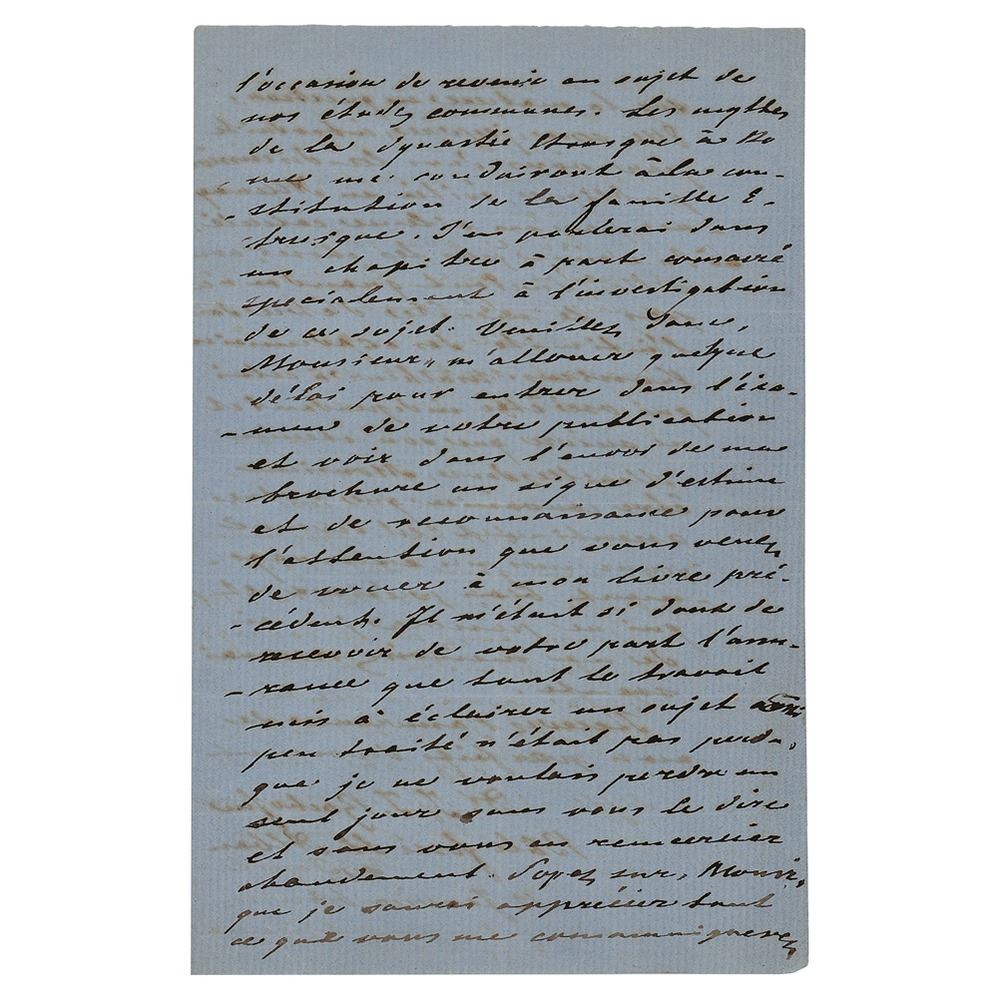 l'occasion de revenir au sujet de
nos études communes. Les mythes
de la dynastie Etrusque à Ro
me me conduiront à la con-
-stitution de la famille E-
trusque. J'en parlerai dans
un chapitre à part consacré
specialement à l'investigation
de ce sujet. Veuillez donc,
Monsieur, m'allouer quelque
délai pour entrer dans l'éxa-
-men de votre publication
et voir dans l'envoi de ma
brochure un signe d'estime
et de reconnaissance pour
l'attention que vous venez
de vouer à mon livre pré-
-cédent. Il m'était si doux de
recevoir de votre part l'assu-
-rance que tout le travail
mis à éclairer un sujet
peu traité n'était pas perdu,
que je ne voulais perdre un
seul jour sans vous le dire
et sans vous en remercier
chaudement. Soyez sur, Monsr,
que je saurai apprécier tout
ce que vous me communiquerez,